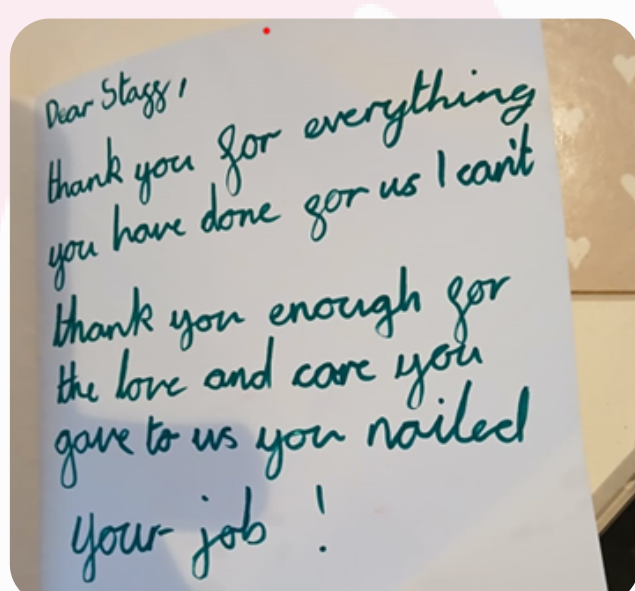 Dear Staff,
thank you for everything
you have done for us I can't
thank you enough for
the love and care you
gave to us you nailed
your job !